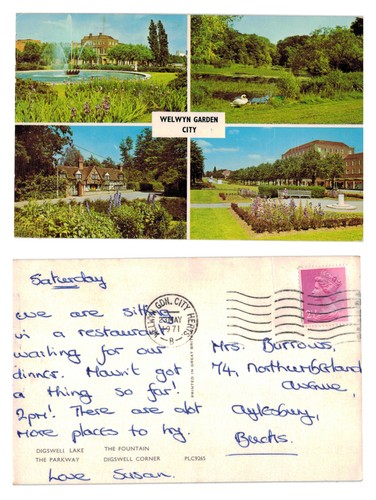 WELWYN GARDEN
CITY
Saturday
We are sitting
in a restaurant
waiting for our
dinner. Hasn't got
a thing so far!
2pm! There are alot
more places to try.
Love Susan.
DIGSWELL LAKE THE FOUNTAIN
THE PARKWAY DIGSWELL CORNER PLC9265
PRINTED IN GREAT BRITAIN
WELWYN GDN. CITY HERTS
MAY
1971
B
Mrs. Burrows,
74, Northumberland
Avenue,
Aylesbury,
Bucks.